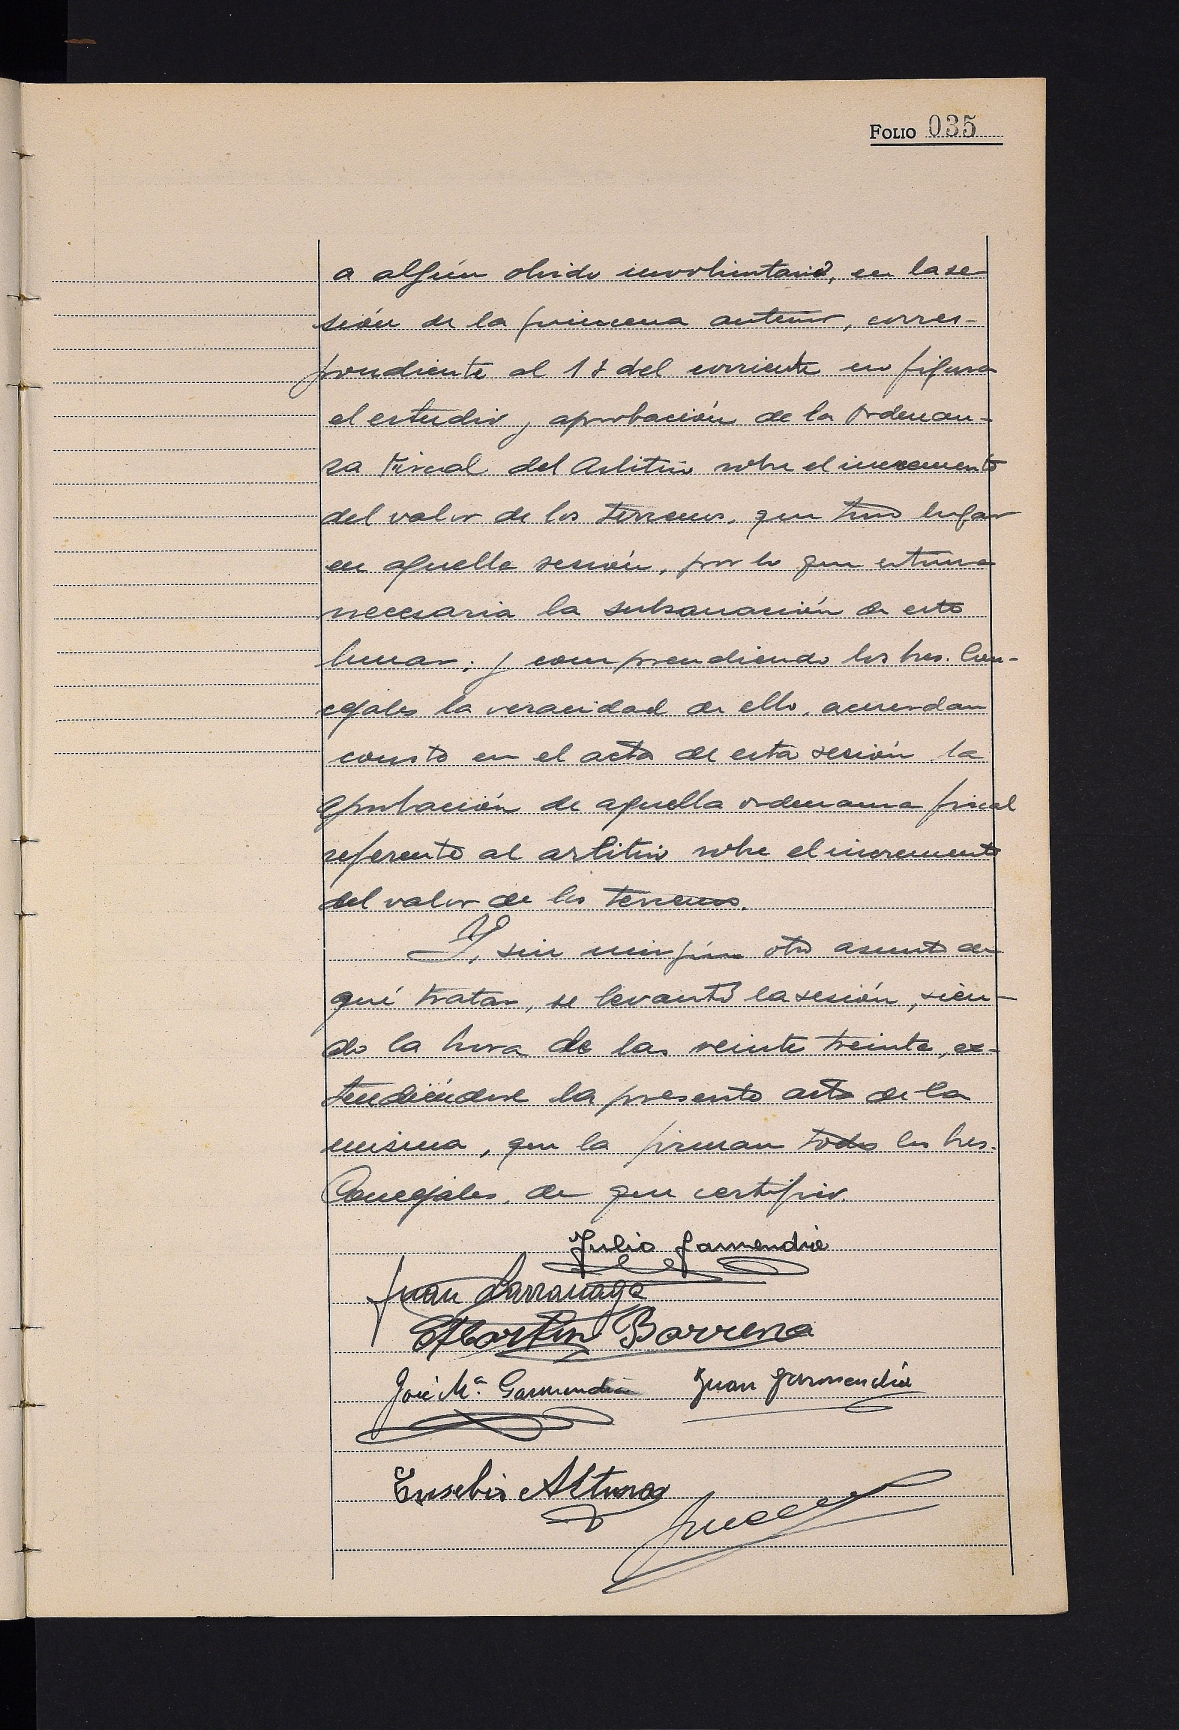 FOLIO 035
a algún olvido involuntario, en la se-
sión de la quincena anterior, corres-
pondiente al 18 del corriente no figura
el estudio y aprobación de la Ordenan-
za Fiscal del Arbitrio sobre el incremento
del valor de los terrenos, que tuvo lugar
en aquella sesión, por lo que estima
necesaria la subsanación de este
lunar; y comprendiendo los Sres. Con-
cejales la veracidad de ello, acuerdan
conste en el acta de esta sesión la
aprobación de aquella ordenanza fiscal
referente al arbitrio sobre el incremento
del valor de los terrenos.
Y, sin ningún otro asunto de
qué tratar, se levantó la sesión, sien-
do la hora de las veinte treinta, ex-
tendiéndose la presente acta de la
misma, que la firman todos los Sres.
Concejales, de que certifico.
Julio Garmendia
Juan Larrañaga
Martin Barrena
José Mª. Garmendia Juan Garmendia
Eusebio Altuna